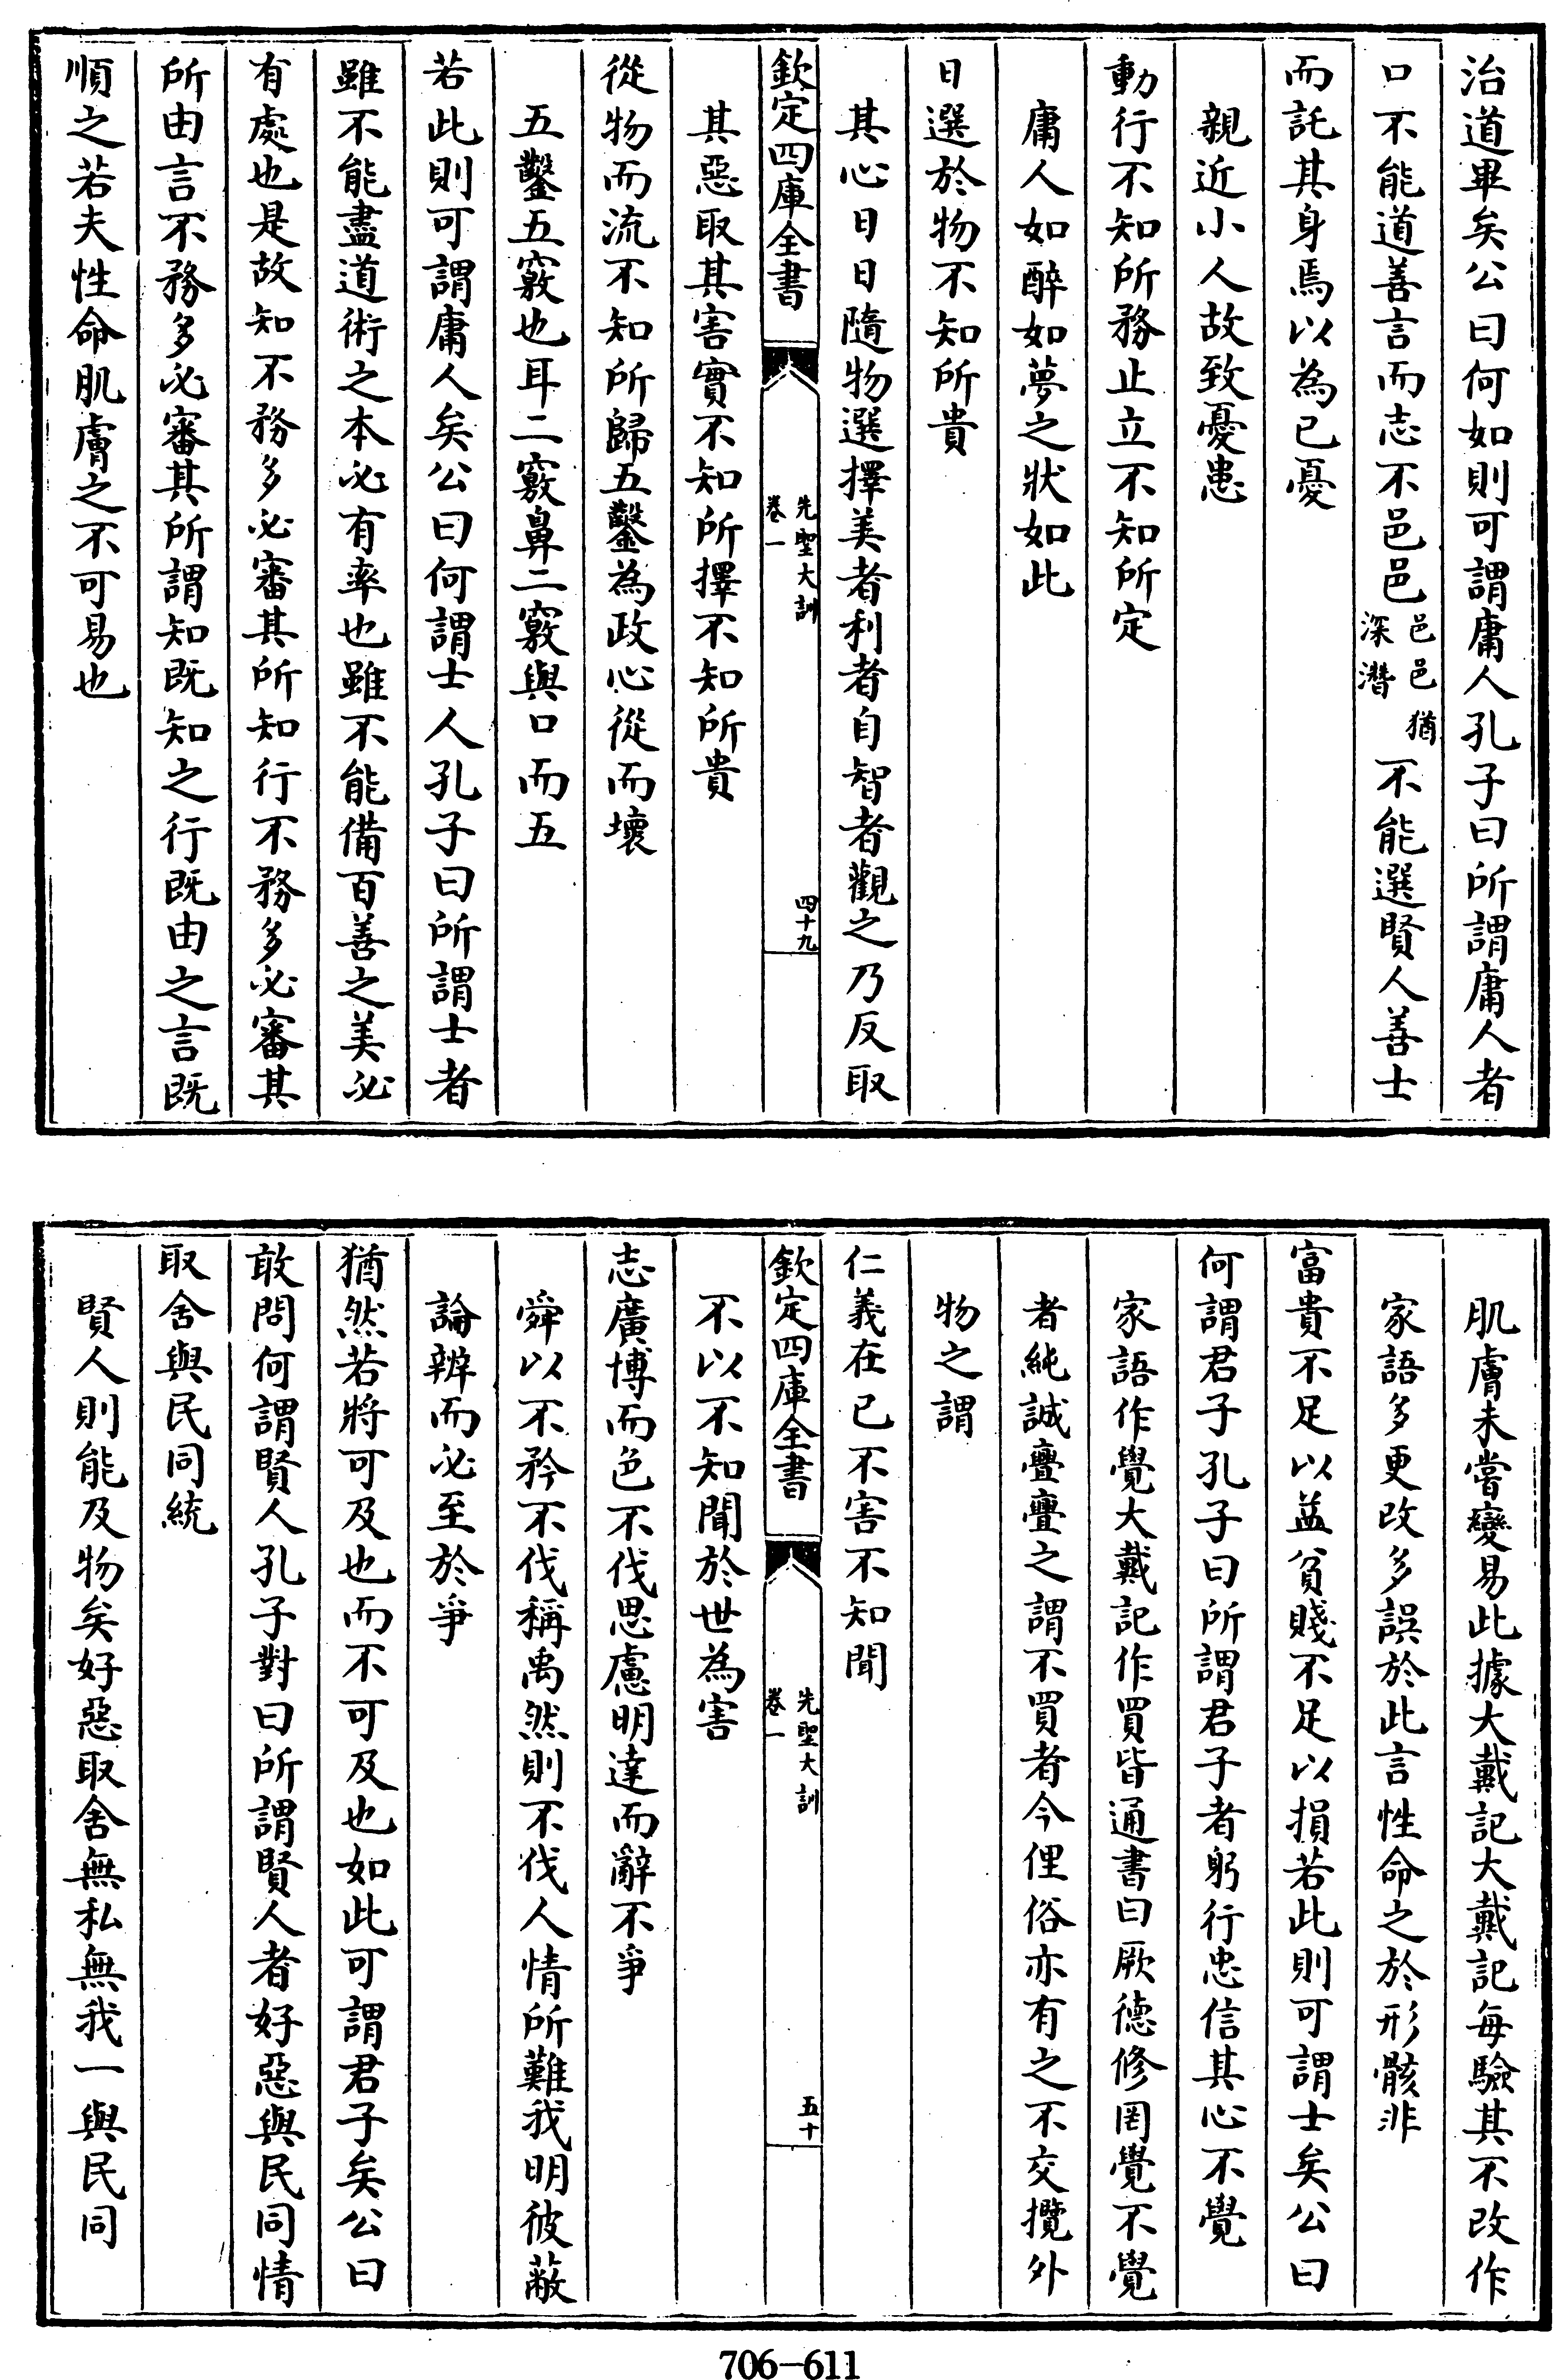 治道畢矣公曰何如則可謂庸人孔子曰所謂庸人者
口不能道善言而志不邑邑邑邑猶深潛不能選賢人善士
而託其身焉以為已憂
親近小人故致憂患
動行不知所務止立不知所定
庸人如醉如夢之狀如此
日選於物不知所貴
其心日日隨物選擇美者利者自智者觀之乃反取
欽定四庫全書
先聖大訓
卷一
四十九
其惡取其害實不知所擇不知所貴
從物而流不知所歸五鑿為政心從而壞
五鑿五竅也耳二竅鼻二竅與口而五
若此則可謂庸人矣公曰何謂士人孔子曰所謂士者
雖不能盡道術之本必有率也雖不能備百善之美必
有處也是故知不務多必審其所知行不務多必審其
所由言不務多必審其所謂知既知之行既由之言既
順之若夫性命肌膚之不可易也
肌膚未嘗變易此據大戴記大戴記每驗其不改作
家語多更改多誤於此言性命之於形骸非
富貴不足以益貧賤不足以損若此則可謂士矣公曰
何謂君子孔子曰所謂君子者躬行忠信其心不覺
家語作覺大戴記作買皆通書曰厥德修罔覺不覺
者純誠亹亹之謂不買者今俚俗亦有之不交攬外
物之謂
仁義在已不害不知聞
欽定四庫全書
先聖大訓
卷一
五十
不以不知聞於世為害
志廣博而色不伐思慮明達而辭不爭
舜以不矜不伐稱禹然則不伐人情所難我明彼蔽
論辨而必至於爭
猶然若將可及也而不可及也如此可謂君子矣公曰
敢問何謂賢人孔子對曰所謂賢人者好惡與民同情
取舍與民同統
賢人則能及物矣好惡取舍無私無我一與民同
706-611